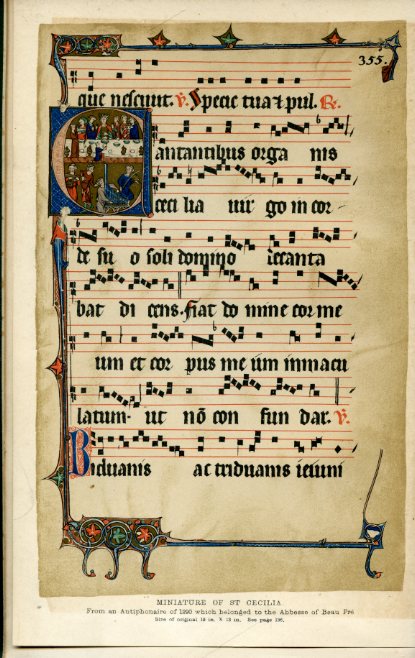 355.
que nesciunt. V. Specie tua ⁊ pul. R.
Cantantibus orga nis
ceci lia uir go in cor
de su o soli domino decanta
bat di cens. fiat do mine cor me
um et cor pus me um inmacu
latum. ut nō con fun dar. V.
Biduanis ac triduanis ieiuni
MINIATURE OF ST CECILIA
From an Antiphonaire of 1290 which belonged to the Abbesse of Beau Pré
Size of original 19 in. X 13 in. See page 136.